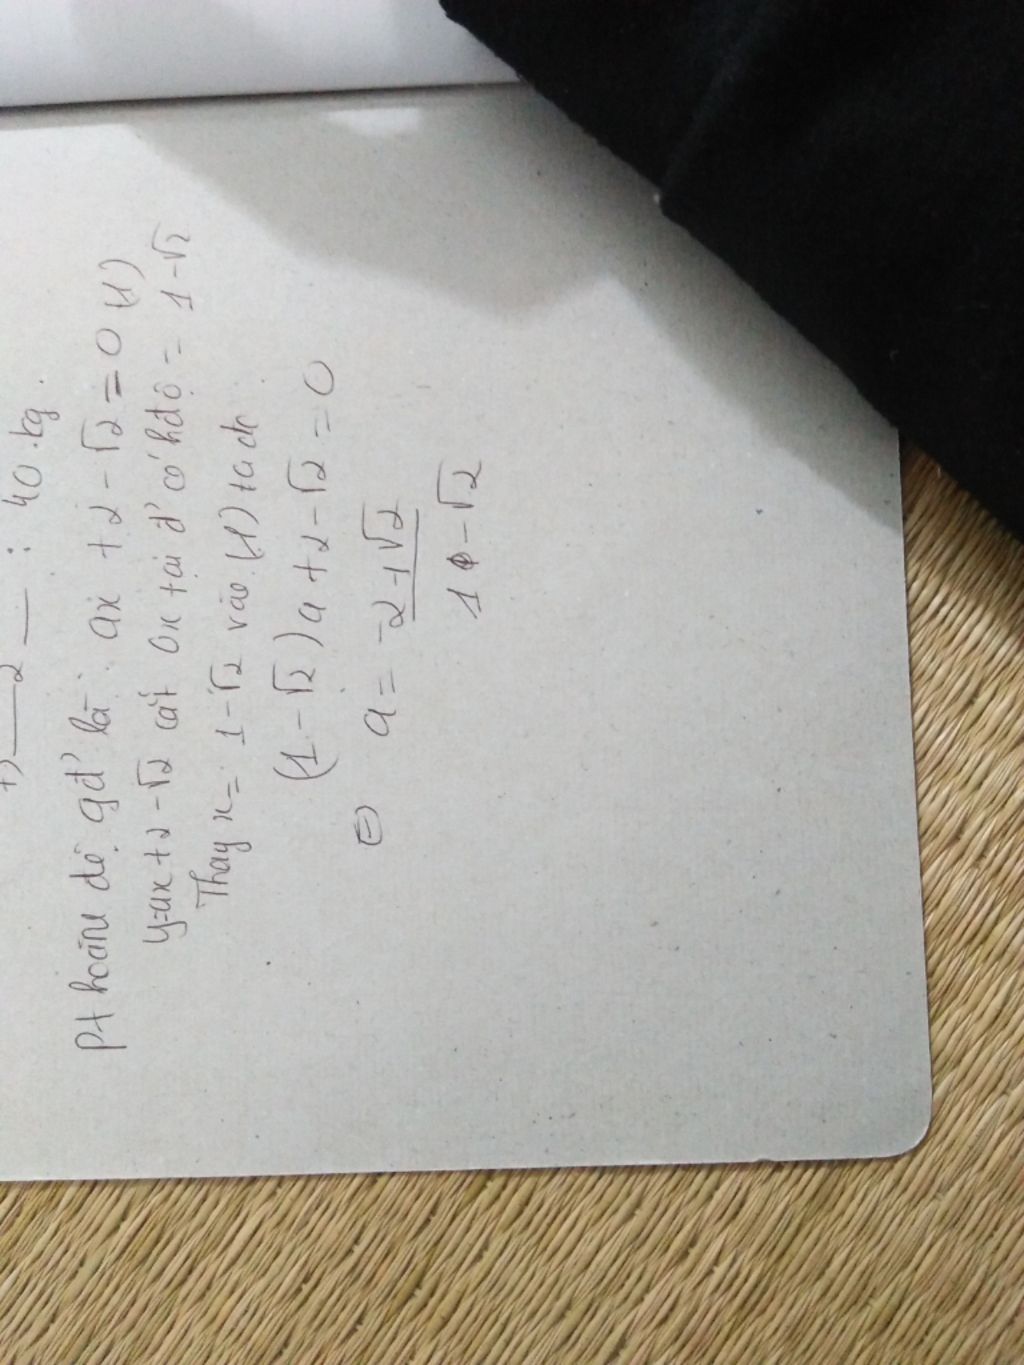 : 40 kg.
pt hoành độ gđ' là : ax + 2 - √2 = 0 (1)
y=ax+2-√2 cắt ox tại đ' có hđộ = 1-√2
Thay x = 1-√2 vào (1) ta đc
(1-√2)a + 2-√2 = 0
⇔ a = -2+√2
1-√2